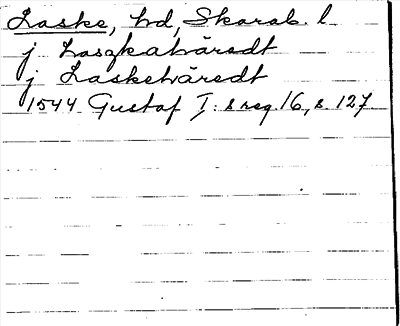 Laske, hd, Skarab. l
j Lasgkahäredt
j Laskehäredt
1544 Gustaf I:s reg. 16, s. 127